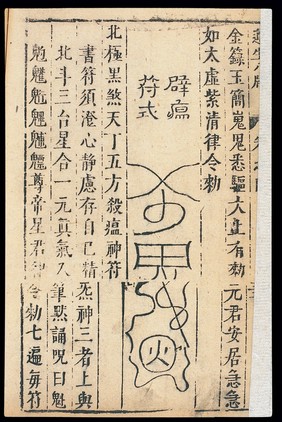 金籙玉簡嵬鬼悉驅大上有勅元君安居急急
如太虛紫清律令勅
辟瘟
符式
北極黑煞天丁五方殺瘟神符
書符須澄心靜慮存自己精炁神三者上與
北斗三台星合一元真氣入筆默誦呪曰魁
尊帝星君
令勅七遍每符